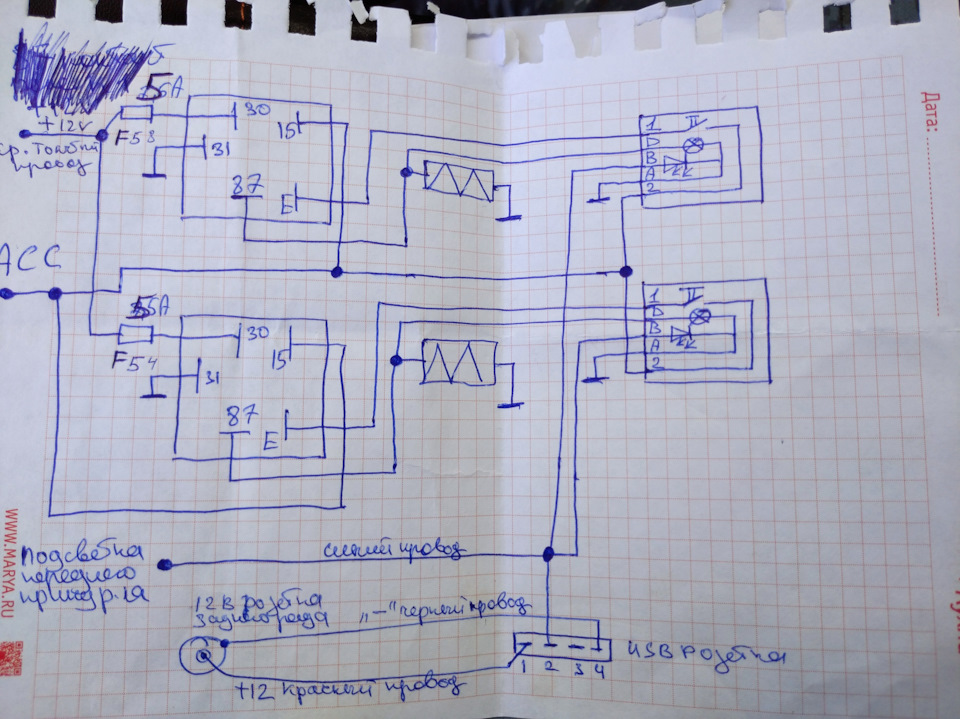 5A
+12V
F53
ср. толстый
провод
30
15
31
87
E
1
II
D
B
A
2
Дата:
ACC
5A
F54
30
15
31
87
E
1
II
D
B
A
2
Подсветка
переднего
синий провод
12В розетка
заднего ряда
„—" черный провод
USB розетка
1 2 3 4
+12 красный провод
WWW.MARYA.RU